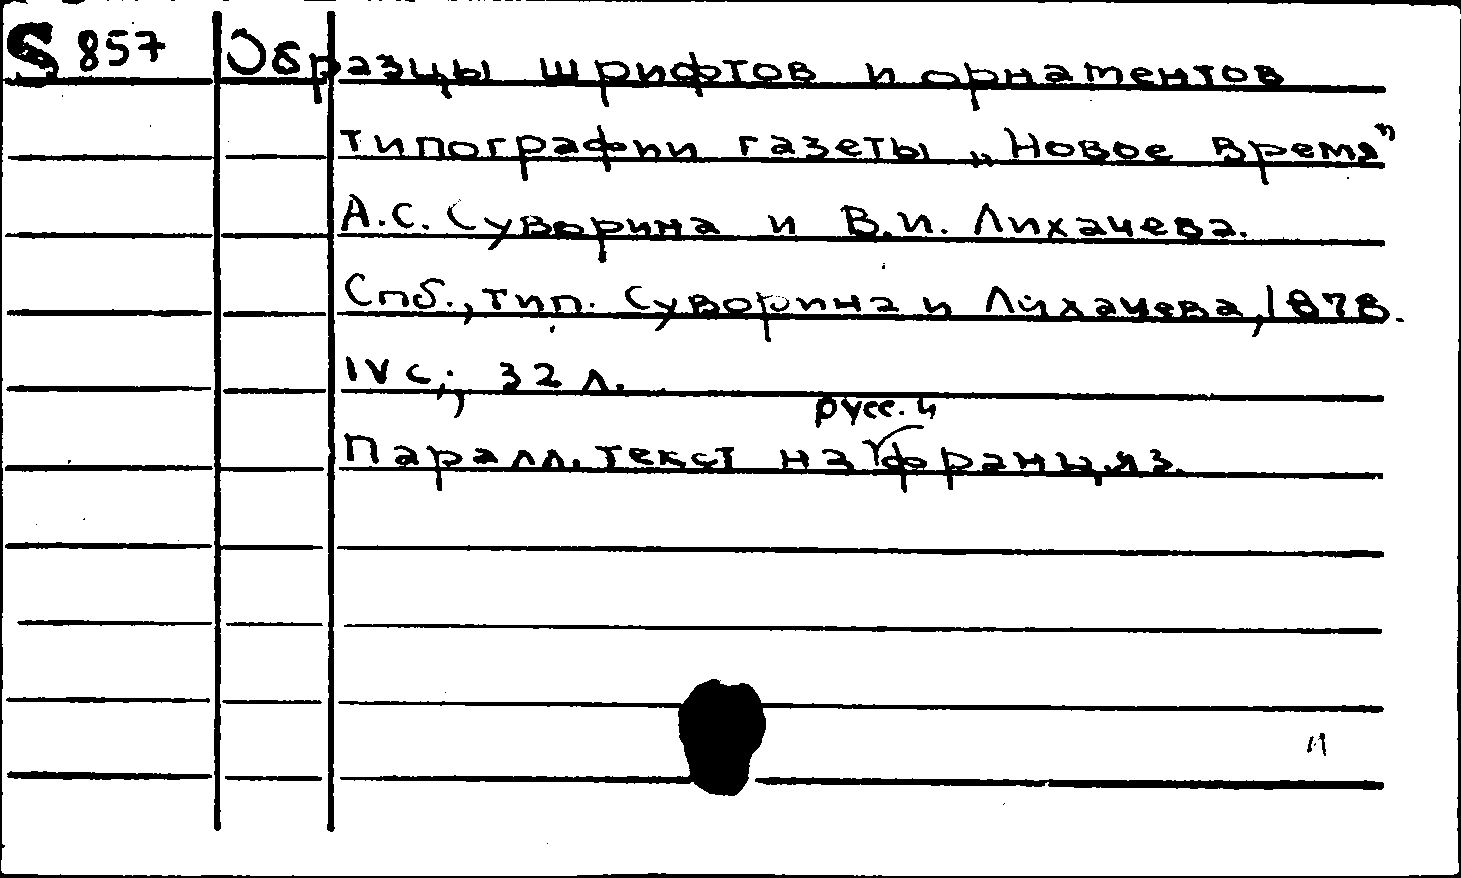 S 857 Образцы шрифтов и орнаментов
типографии газеты „Новое время”
А.С. Суворина и В.И. Лихачева.
Спб., тип. Суворина и Лихачева, 1878.
IV с.; 32 л.
русс. и
Паралл. текст на франц. яз.